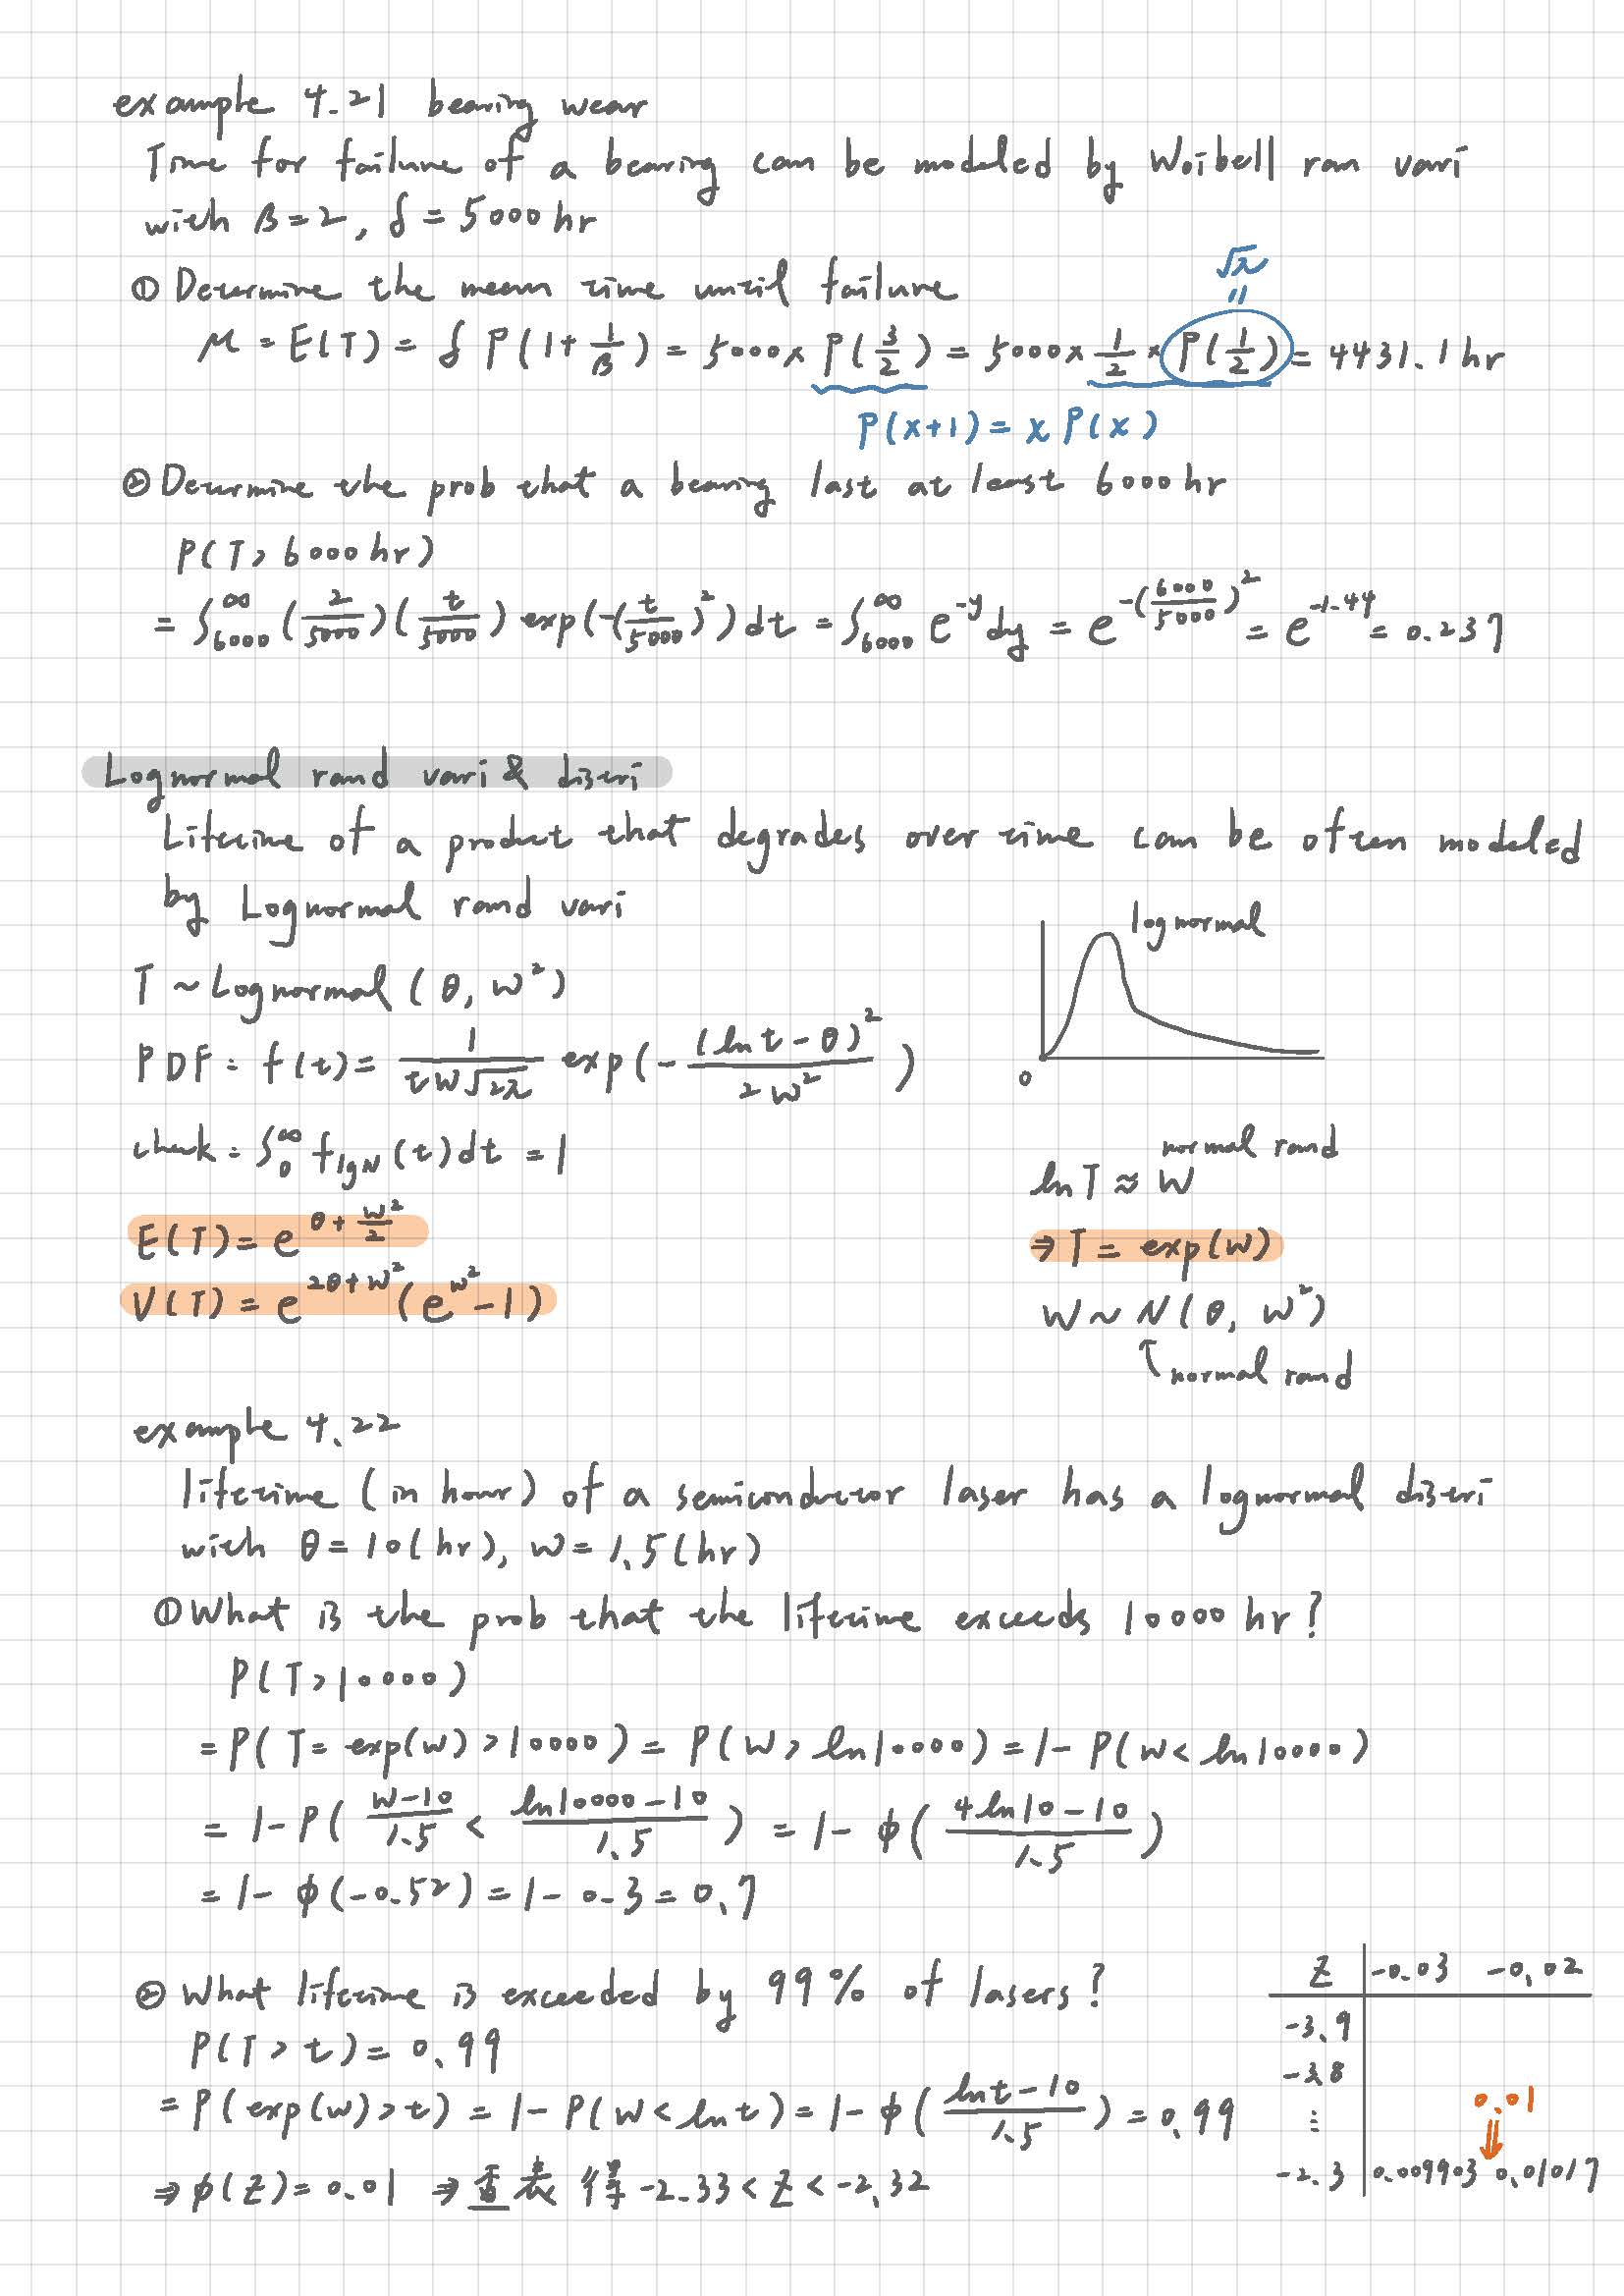 example 4.21 bearing wear
Time for failure of a bearing can be modeled by Woibell ran vari
with β=2, δ=5000hr
① Determine the mean time until failure
√π
=
μ = E(T) = δ Γ(1+1/β) = 5000×Γ(3/2) = 5000×1/2×Γ(1/2) = 4431.1hr
Γ(x+1) = xΓ(x)
② Determine the prob that a bearing last at least 6000hr
P(T>6000hr)
= ∫_6000^∞ (2/5000)(t/5000) exp(-(t/5000)^2)dt = ∫_6000^∞ e^-y dy = e^-(6000/5000)^2 = e^-1.44 = 0.237
Lognormal rand vari & distri
Lifetime of a product that degrades over time can be often modeled
by Lognormal rand vari
lognormal
0
T ~ Lognormal (θ, w^2)
PDF: f(t) = 1/(tw√2π) exp(-(lnt-θ)^2/2w^2)
check: ∫_0^∞ f_lgN(t)dt = 1
E(T) = e^(θ+w^2/2)
V(T) = e^(2θ+w^2)(e^(w^2)-1)
normal rand
lnT ≈ W
⇒ T = exp(W)
W ~ N(θ, w^2)
normal rand
example 4.22
lifetime (in hour) of a semiconductor laser has a lognormal distri
with θ=10(hr), w=1.5(hr)
① What is the prob that the lifetime exceeds 10000 hr?
P(T>10000)
= P(T=exp(W)>10000) = P(W>ln10000) = 1-P(W<ln10000)
= 1-P((W-10)/1.5 < (ln10000-10)/1.5) = 1-φ((4ln10-10)/1.5)
= 1-φ(-0.52) = 1-0.3 = 0.7
② What lifetime is exceeded by 99% of lasers?
P(T>t) = 0.99
= P(exp(W)>t) = 1-P(W<lnt) = 1-φ((lnt-10)/1.5) = 0.99
⇒ φ(Z)=0.01 ⇒ 查表得 -2.33<Z<-2.32
Z -0.03 -0.02
-3.9
-3.8
0.01
⋮
-2.3 0.009903 0.01017